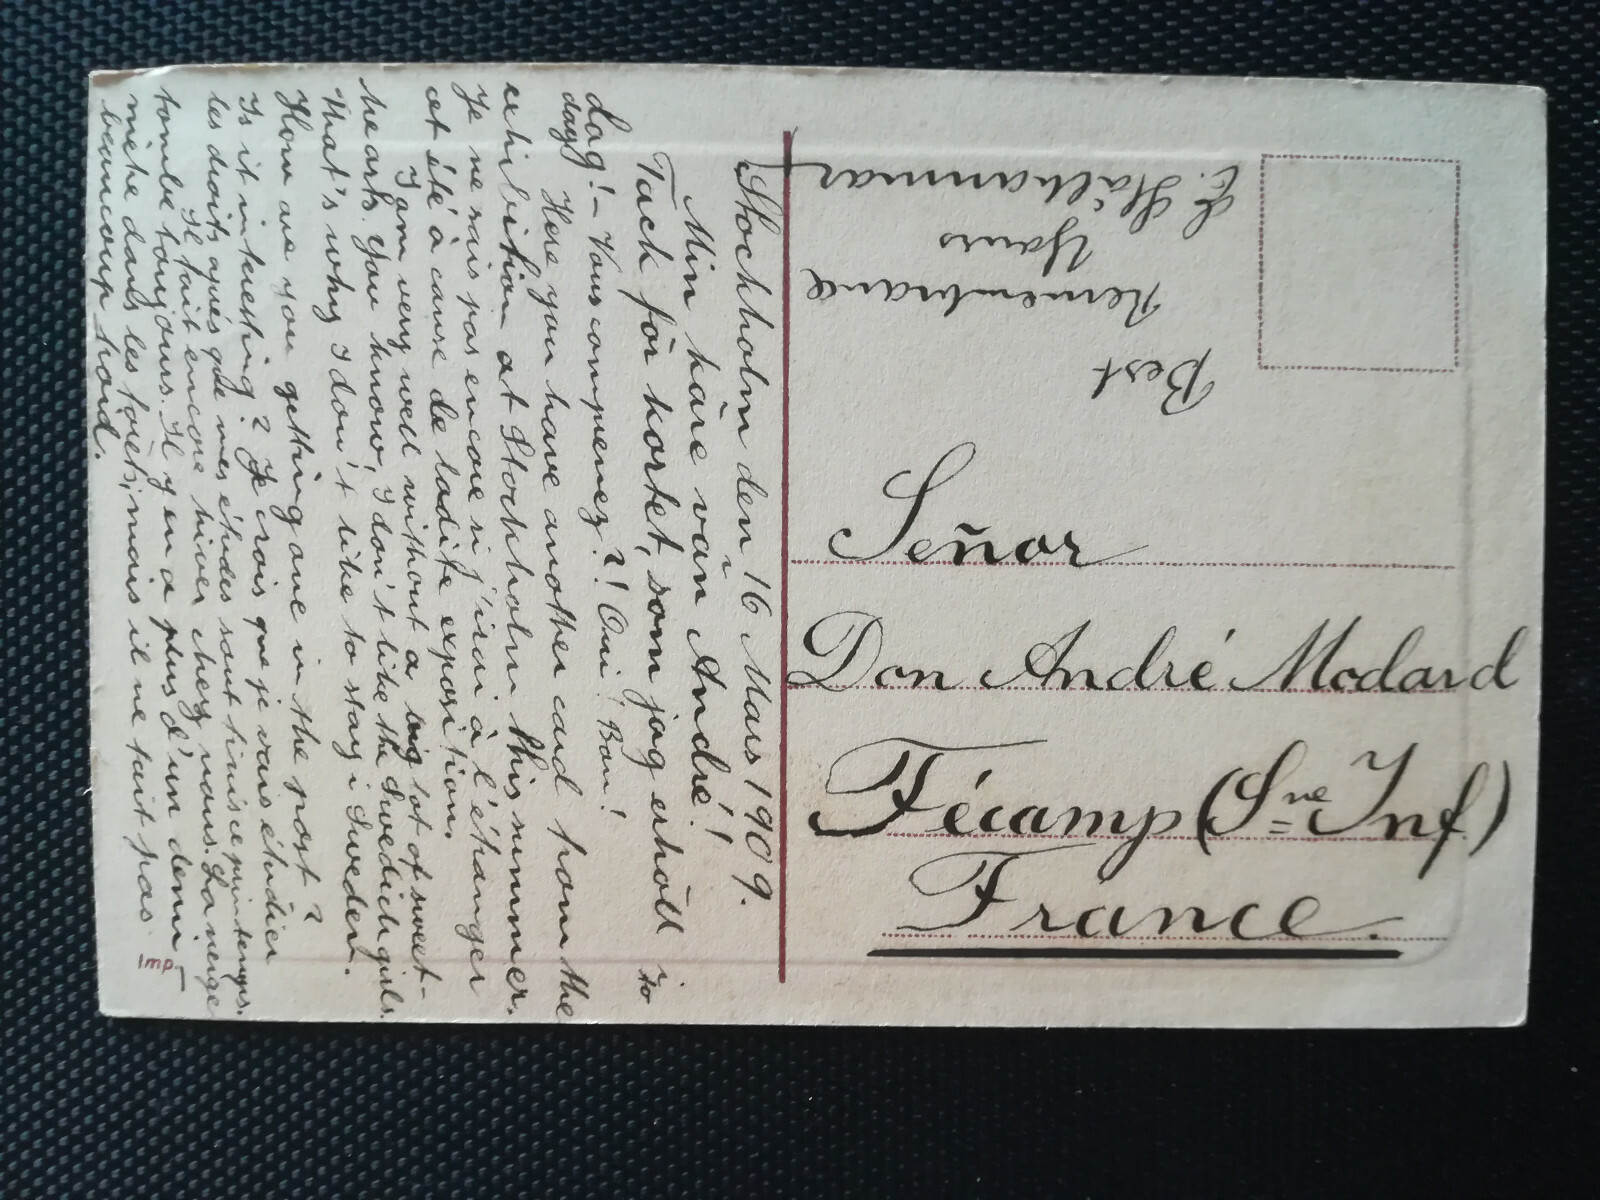 Stockholm den 16 Mars 1909.
Min käre vän André!
Tack för kortet, som jag erhöll
dag! - Vous comprenez?! Oui! Bon!
Here you have another card from the
exhibition at Stockholm this summer.
Je ne sais pas encore si j'irai à l'étranger
cet été à cause de ladite exposition.
I am very well without a big lot of sweet-
hearts. You know, I don't like the Swedich girls.
That's why I don't like to stay i Sweden.
How are you getting one in the post?
Is it interesting? Je crois que je vais étudier
les droits après que mes études sont finis ce printemps.
Il fait encore hiver chez nous. La neige
tombe toujours. Il y en a plus d'un demi
mètre dans les forêts, mais il ne fait pas
beaucoup froid.
Imp.
Best
Remembrance
Yours
E. Stålhammar
Señor
Don André Modard
Fécamp (Sne Inf)
France.